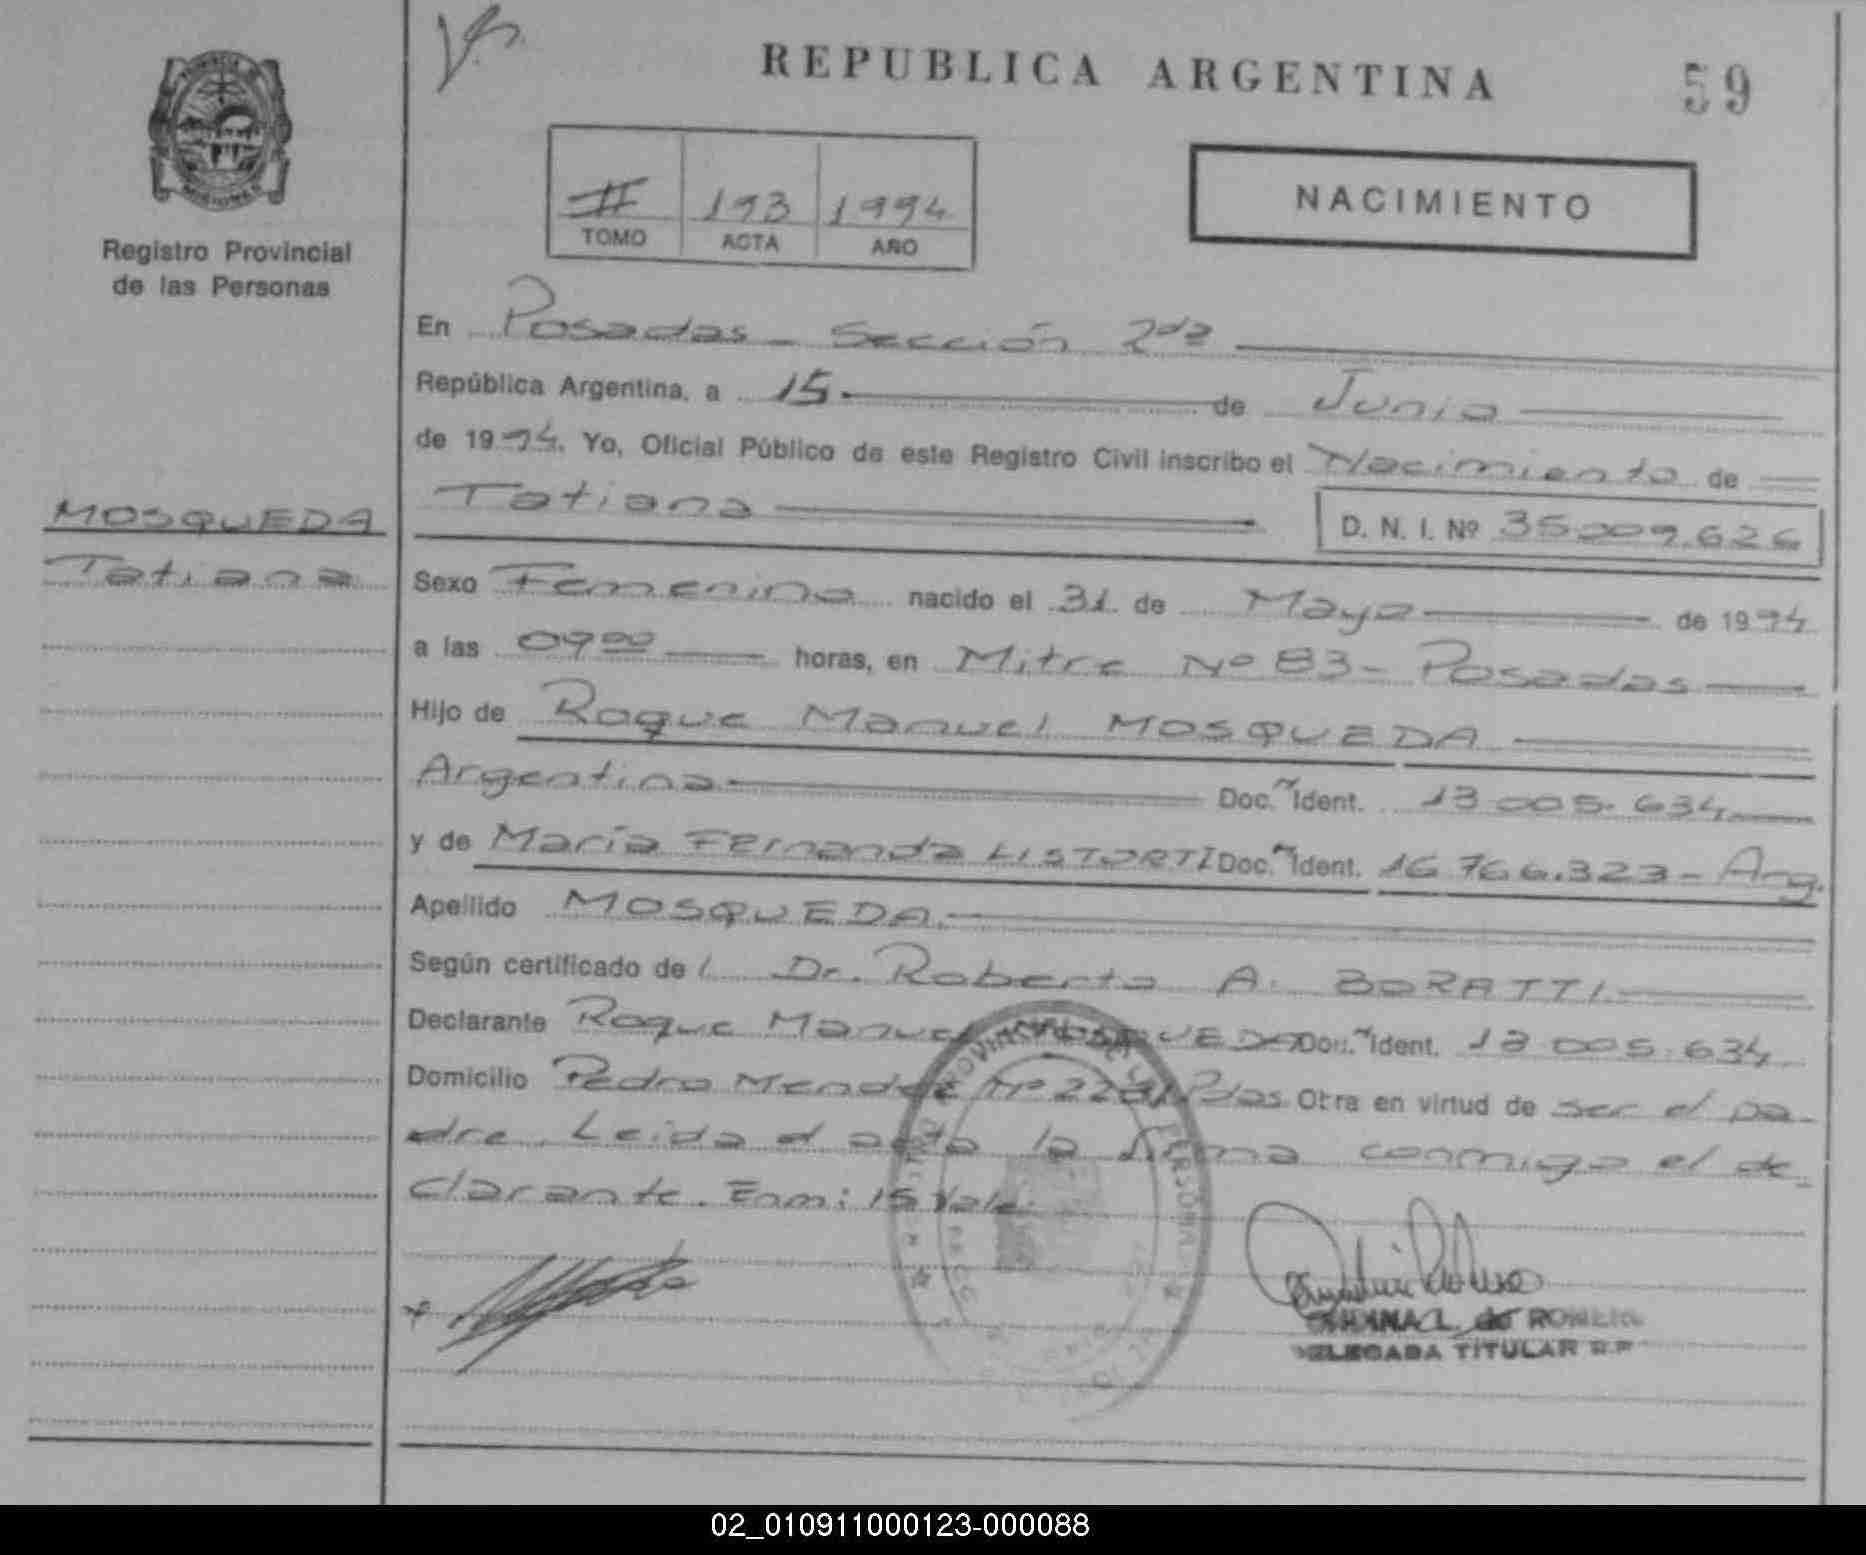 REPUBLICA ARGENTINA
59
NACIMIENTO
II 193 1994
TOMO ACTA AÑO
Registro Provincial
de las Personas
En Posadas - Sección 2da
República Argentina, a 15 de Junio
de 1994. Yo, Oficial Público de este Registro Civil inscribo el Nacimiento de
Tatiana D. N. I. Nº 35.009.626
MOSQUEDA
Tatiana
Sexo Femenino nacido el 31 de Mayo de 1994
a las 09 00 horas, en Mitre Nº 83 - Posadas
Hijo de Roque Manuel MOSQUEDA
Argentina Doc. Ident. 13.005.634
y de María Fernanda LISTORTI Doc. Ident. 16.766.323 - Arg.
Apellido MOSQUEDA
Según certificado del Dr. Roberto A. BORATTI
Declarante Roque Manuel MOSQUEDA Doc. Ident. 13.005.634
Domicilio Pedro Mendez Nº Pdas Otra en virtud de ser el pa-
dre. Leida el acta la firma conmigo el de-
clarante. Enm: 15 Vale.
de
DELEGADA TITULAR R.P.
02_010911000123-000088